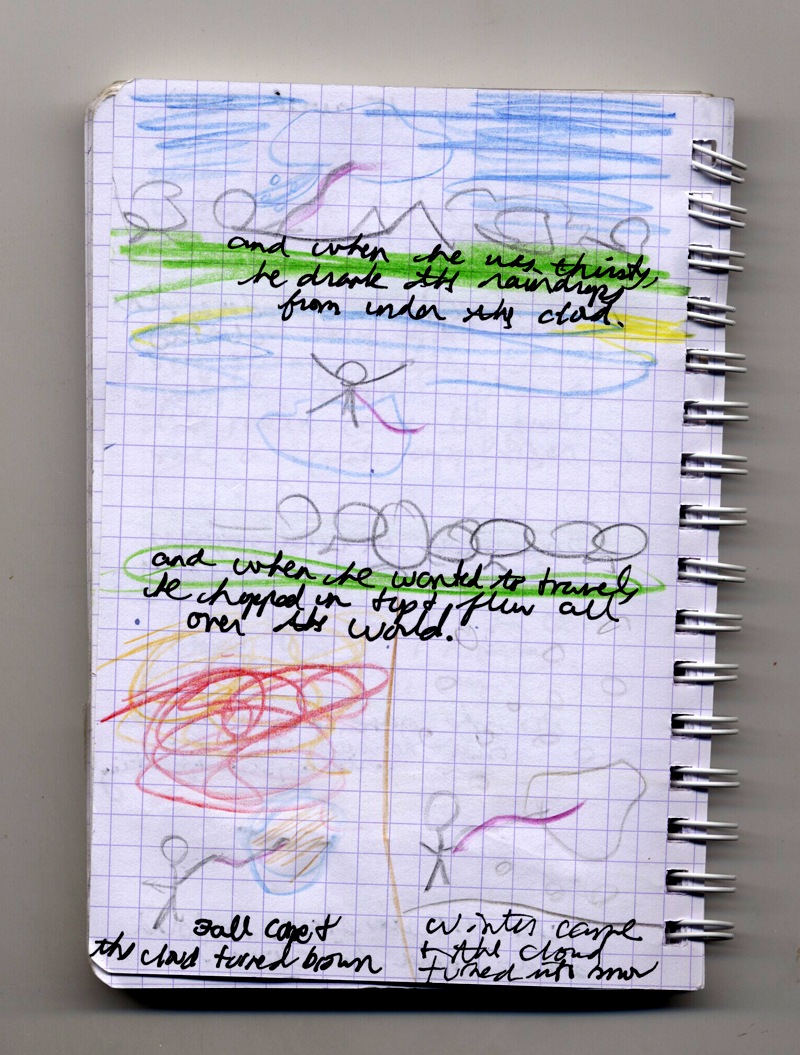 and when he was thirsty,
he drank the raindrops
from under the cloud.
and when he wanted to travel,
he hopped on top & flew all
over the world.
Fall came &
the cloud turned brown
Winter came
& the cloud
turned into snow